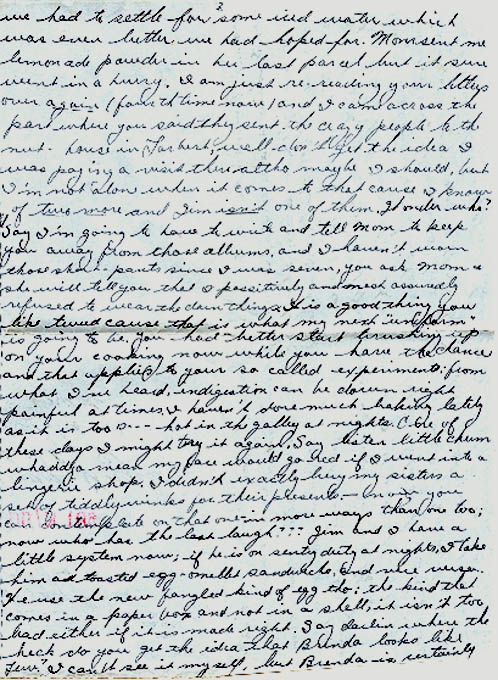 we had to settle for some iced water which
was even better we had hoped for. Mom sent me
lemonade powder in her last parcel but it sure
went in a hurry. I am just re-reading your letters
over again (fourth time now) and I came across the
part where you said they sent the crazy people to the
nut-house in, well don't get the idea I
was paying a visit there altho maybe I should, but
I'm not alone when it comes to that cause I know
of two more and Jim isn't one of them. I wonder who?
Say I'm going to have to write and tell Mom to keep
you away from those albums, and I haven't worn
those short-pants since I was seven, you ask Mom &
she will tell you that I possitively and most assuredly
refused to wear the darn things. It is a good thing you
like tweed cause that is what my next "uniform"
is going to be. You had better start brushing up
on your cooking now while you have the chance
and that applies to your so called experiments; from
what I've heard, indigestion can be darn right
painful at times. I haven't done much baking lately
as it is too --- hot in the galley at nights. One of
these days I might try it again. Say sister little chum
whaddya mean my face would go red if I went into a
lingerie shop, I didn't exactly buy my sisters a
set of tiddly-winks for their presents - now you
can on that one in more ways than one too;
now who has the last laugh??? Jim and I have a
little system now; if he is on sentry duty at nights, I take
him a toasted egg-omelet sandwich, and vice versa.
We use the new fangled kind of egg tho; the kind that
comes in a paper box and not in a shell; it isn't too
bad either if it is made right. Say darlin where the
heck do you get the idea that Brenda looks like
I can't see it myself, but Brenda is certainly